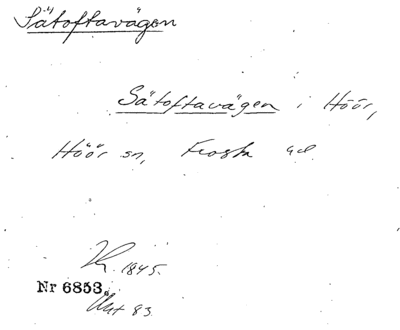 Sätoftavägen
Sätoftavägen i Höör,
Höör sn, Frosta hd.
1845.
Nr 6853.
83.